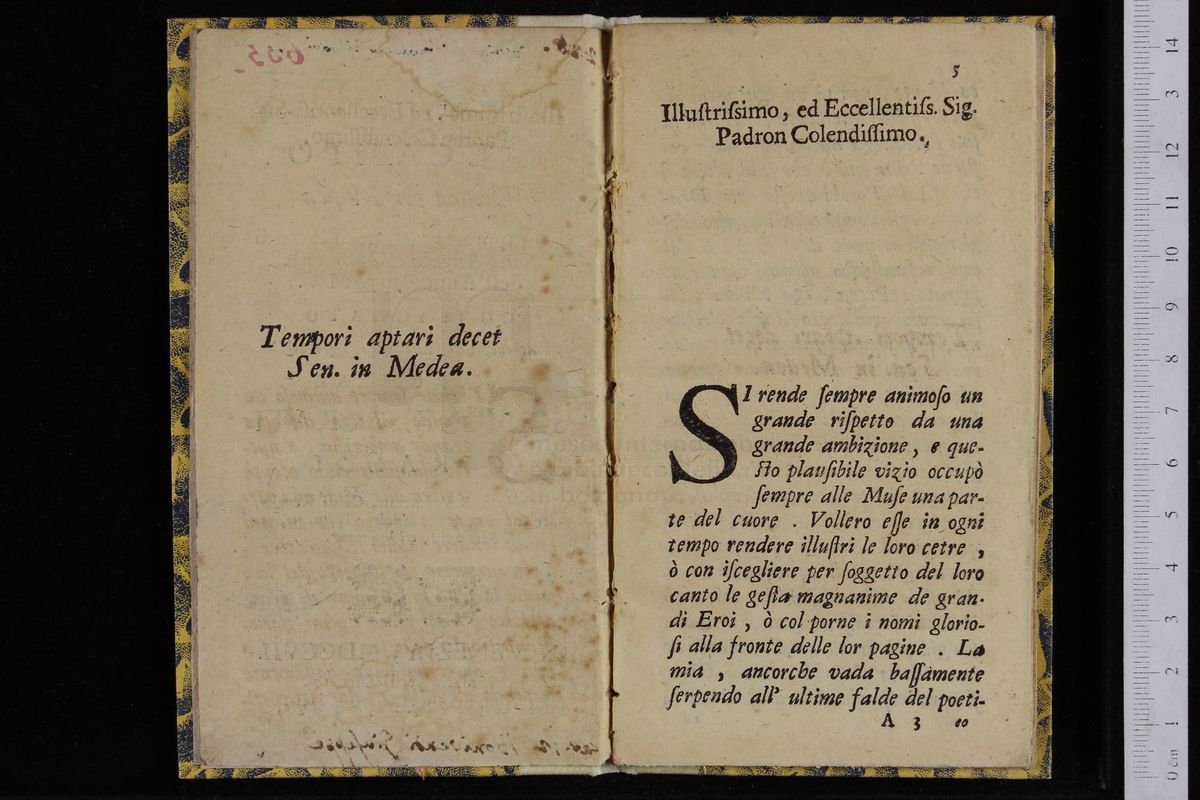 Tempori aptari decet
Sen. in Medea.
5
Illuſtriſsimo, ed Eccellentiſs. Sig.
Padron Colendiſſimo.
SI rende ſempre animoſo un
grande riſpetto da una
grande ambizione, e que-
ſto plauſibile vizio occupò
ſempre alle Muſe una par-
te del cuore. Vollero eſſe in ogni
tempo rendere illuſtri le loro cetre,
ò con iſcegliere per ſoggetto del loro
canto le geſta magnanime de gran-
di Eroi, ò col porne i nomi glorio-
ſi alla fronte delle lor pagine. La
mia, ancorche vada baſſamente
ſerpendo all' ultime falde del poeti-
A 3 co